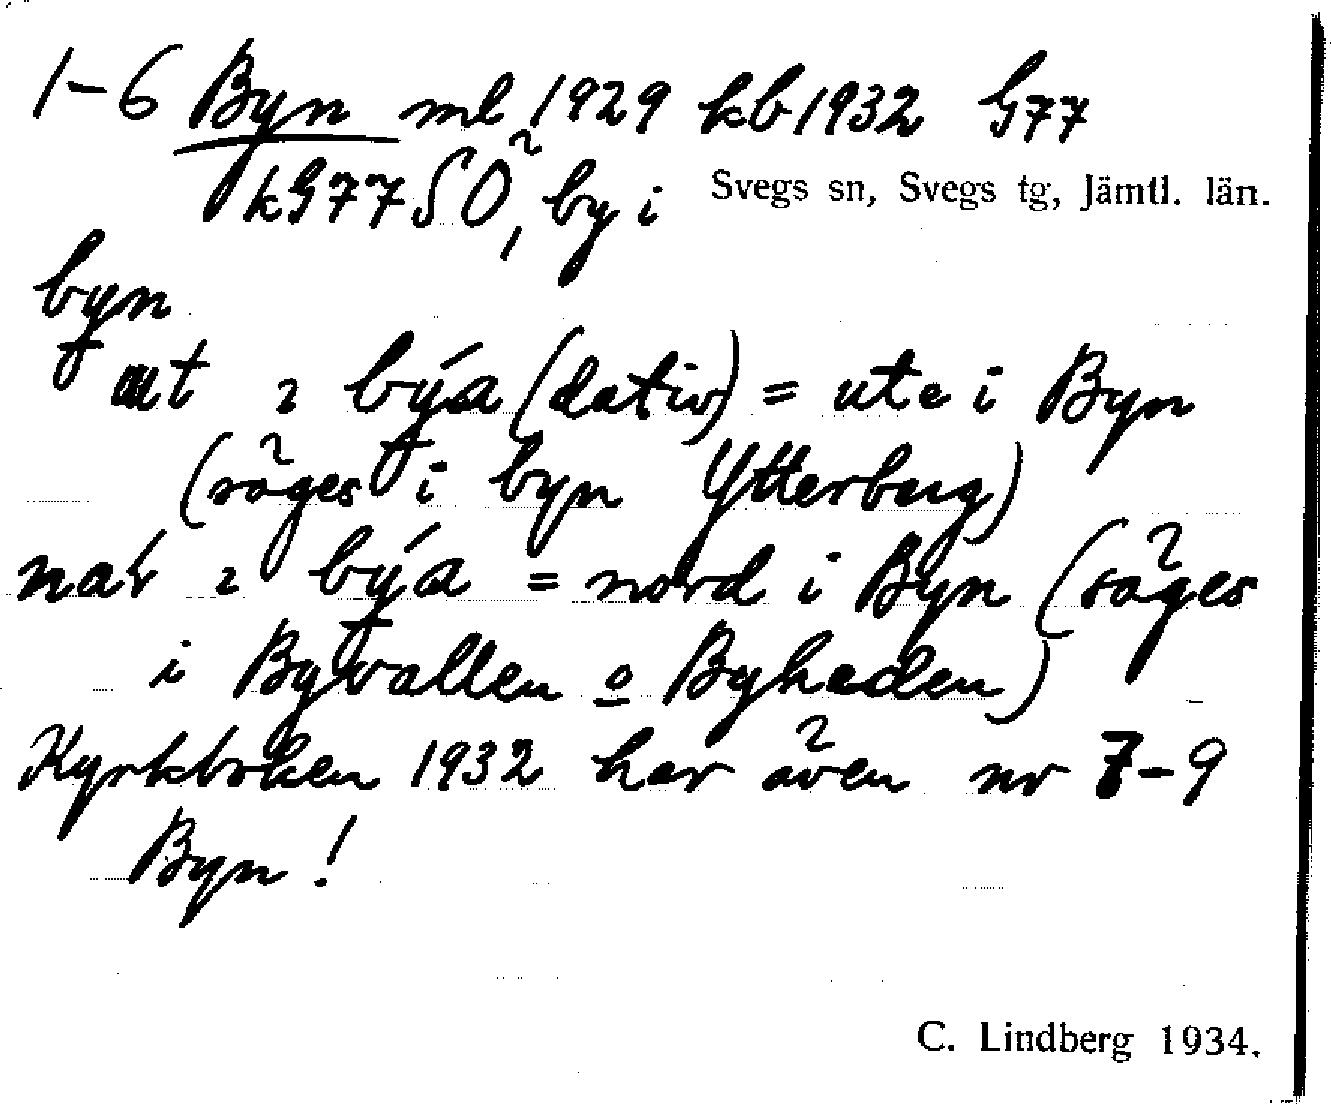 1-6 Byn ml 1929 kb 1932 G77
kG77SÖ, by i Svegs sn, Svegs tg, Jämtl. län.
byn
ut ɩ býa (dativ) = ute i Byn
(säges i byn Ytterberg)
nar ɩ býa = nord i Byn (säges
i Byvallen o Byheden)
Kyrkboken 1932 har även nr 7-9
Byn!
C. Lindberg 1934.